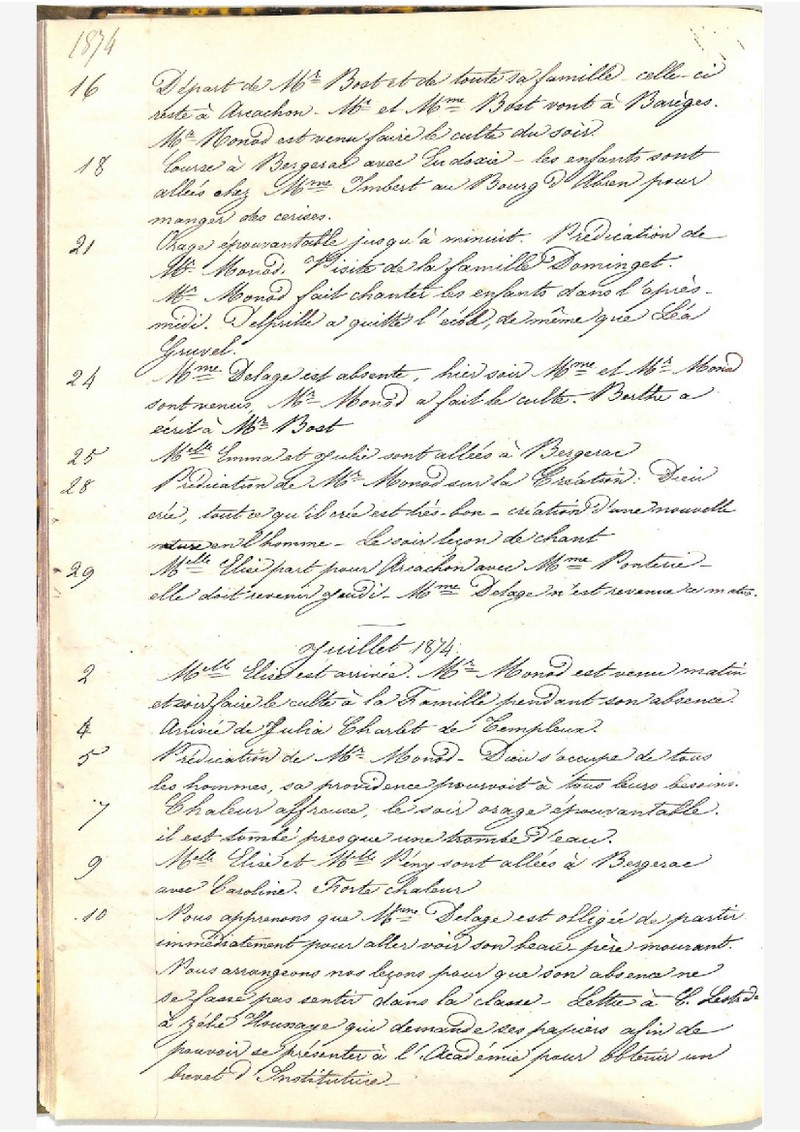 1874
16 Départ de Mr Bost et de toute sa famille - celle-ci
reste à Arcachon - Mr et Mme Bost vont à Barèges.
Mr Monod est venu faire le culte du soir
18 Course à Bergerac avec Eudoxie - les enfants sont
allées chez Mme Imbert au Bourg d'Abren pour
manger des cerises.
21 Orage épouvantable jusqu'à minuit. Prédication de
Mr Monod. Visite de la famille Dominget.
Mr Monod fait chanter les enfants dans l'après-
midi. Delprille a quitté l'école, de même que Léa
Gruvel.
24 Mme Delage est absente, hier soir Mme et Mr Monod
sont venus, Mr Monod a fait le culte. Berthe a
écrit à Mr Bost
25 Melle Emma et Julie sont allées à Bergerac
28 Prédication de Mr Monod sur la Création: Dieu
crée, tout ce qu'il crée est très-bon - création d'une nouvelle
nature en l'homme - Le soir leçon de chant
29 Melle Elise part pour Arcachon avec Mme Ponterie -
elle doit revenir Jeudi - Mme Delage n'est revenue ce matin.
Juillet 1874.
2 Melle Elise est arrivée. Mr Monod est venu matin
et soir faire le culte à la Famille pendant son absence.
4 Arrivée de Julia Charlet de Templeux.
5 Prédication de Mr Monod - Dieu s'occupe de tous
les hommes, sa providence pourvoit à tous leurs besoins.
7 Chaleur affreuse, le soir orage épouvantable.
il est tombé presque une trombe d'eau.
9 Melle Elise et Melle Pény sont allées à Bergerac
avec Caroline. Forte chaleur
10 Nous apprenons que Mme Delage est obligée de partir
immédiatement pour aller voir son beau-père mourant.
Nous arrangeons nos leçons pour que son absence ne
se fasse pas sentir dans la classe - Lettre à C. Lestrade
à Zélie Hounaye qui demande ses papiers afin de
pouvoir se présenter à l'Académie pour obtenir un
brevet d'Institutrice -